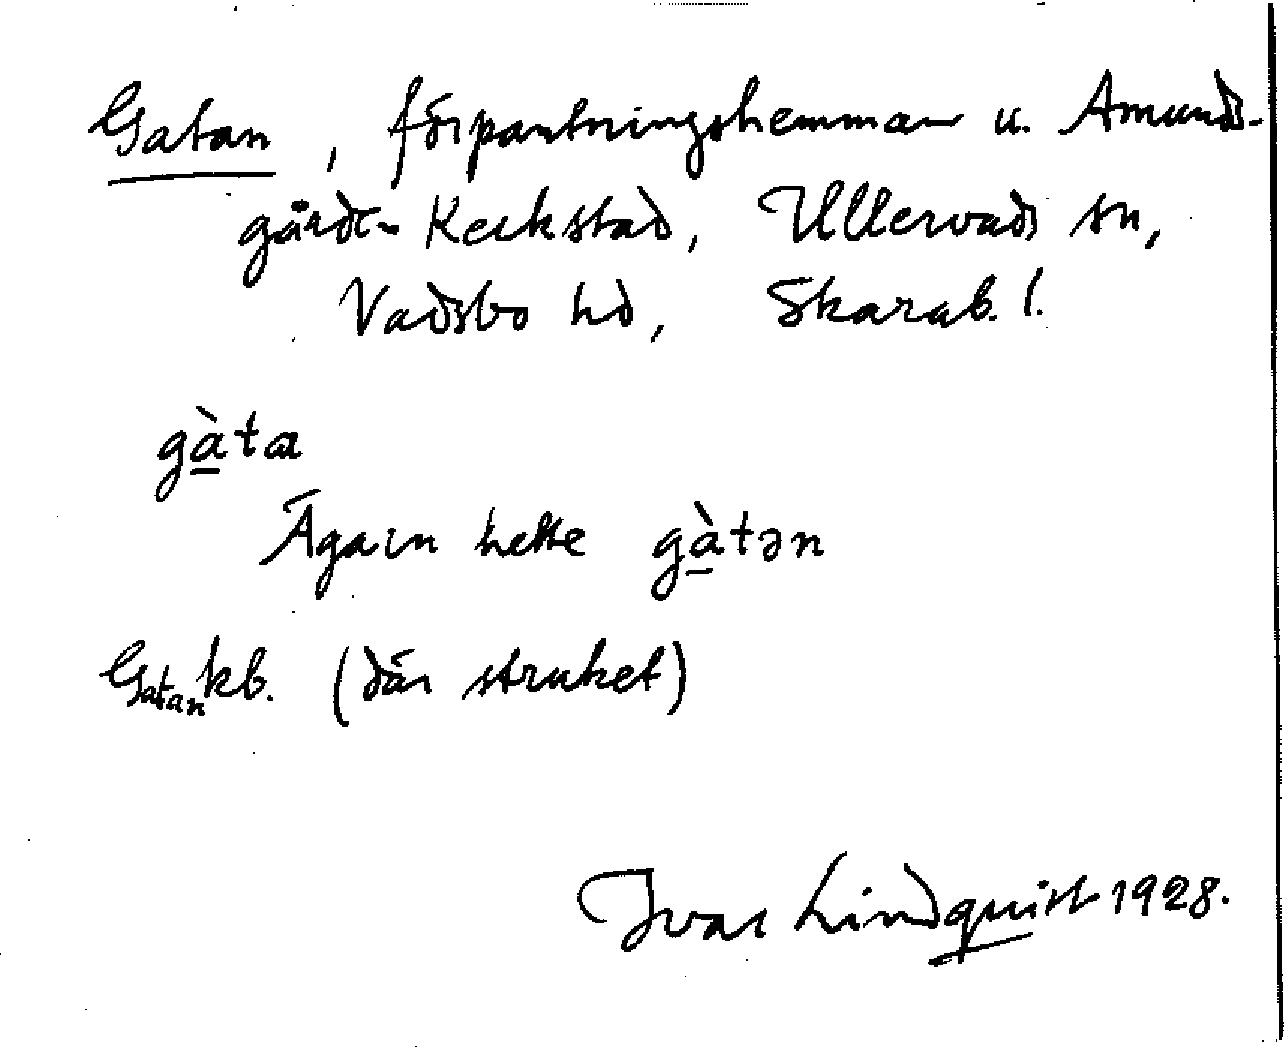 Gatan, förpantningshemman u. Amunds-
gärde-Keckstad, Ullervads sn,
Vadsbo hd, Skarab. l.
gàta
Ägaren hette gàtən
Gatan kb. (där struket)
Ivar Lindquist 1928.